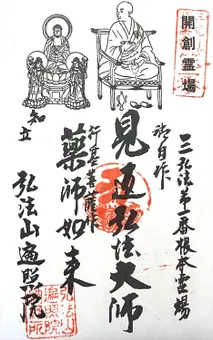 開創霊場
三弘法第一番根本霊場
御自作
見返弘法大師
行基菩薩作
薬師如来
知立
弘法山遍照院